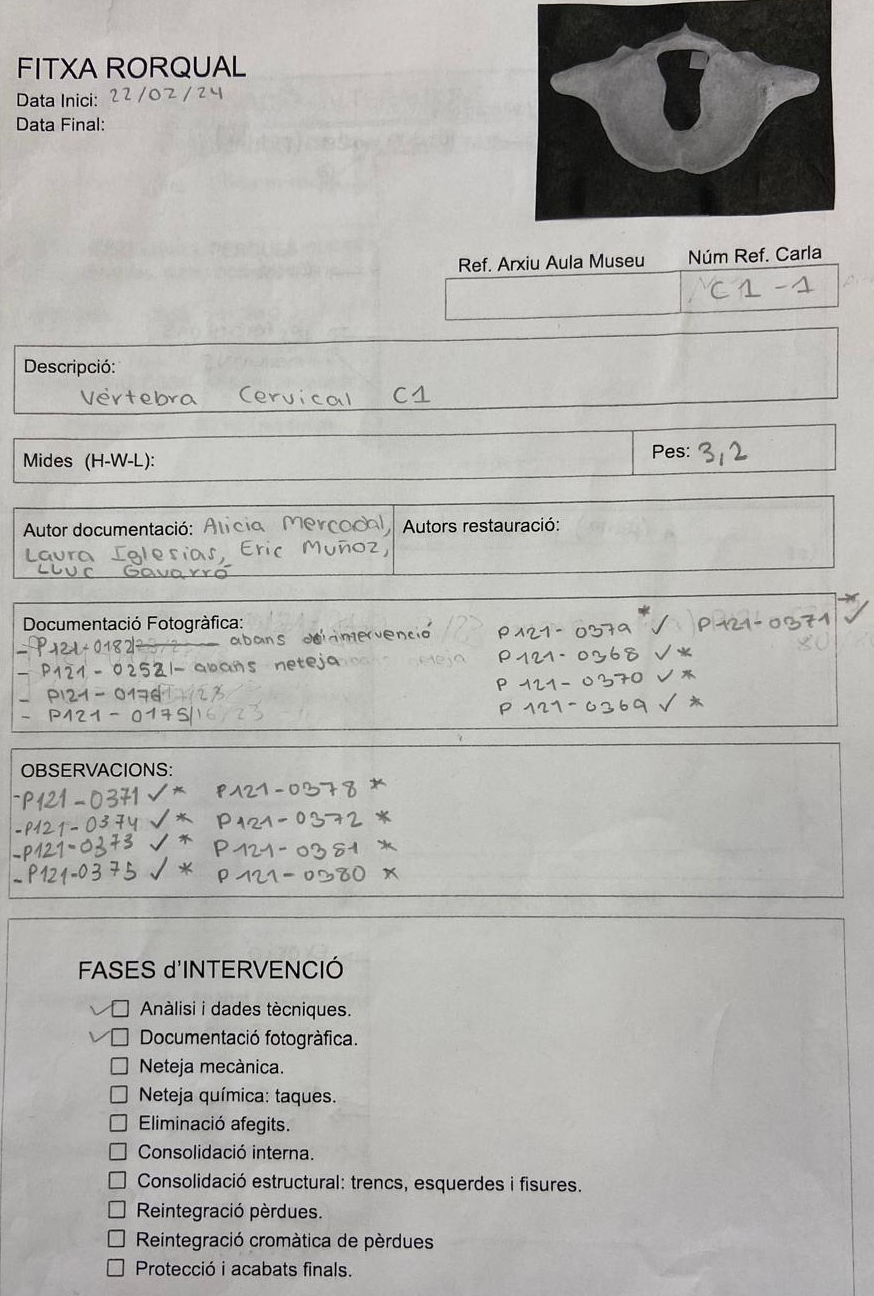 FITXA RORQUAL
Data Inici: 22/02/24
Data Final:
Ref. Arxiu Aula Museu Núm Ref. Carla
C1-1
Descripció:
Vèrtebra Cervical C1
Mides (H-W-L): Pes: 3,2
Autor documentació: Alicia Mercadal, Autors restauració:
Laura Iglesias, Eric Muñoz,
LLUC Gavarró
Documentació Fotogràfica:
- P121-0182 abans d'intervenció P121-0379 * ✓ P121-0371 * ✓
- P121-0252 - abans neteja P121-0368 ✓ *
- P121-0176 P121-0370 ✓ *
- P121-0175 P121-0369 ✓ *
OBSERVACIONS:
-P121-0371 ✓ * P121-0378 *
-P121-0374 ✓ * P121-0372 *
-P121-0373 ✓ * P121-0381 *
-P121-0375 ✓ * P121-0380 *
FASES d'INTERVENCIÓ
✓ ☐ Anàlisi i dades tècniques.
✓ ☐ Documentació fotogràfica.
☐ Neteja mecànica.
☐ Neteja química: taques.
☐ Eliminació afegits.
☐ Consolidació interna.
☐ Consolidació estructural: trencs, esquerdes i fisures.
☐ Reintegració pèrdues.
☐ Reintegració cromàtica de pèrdues
☐ Protecció i acabats finals.